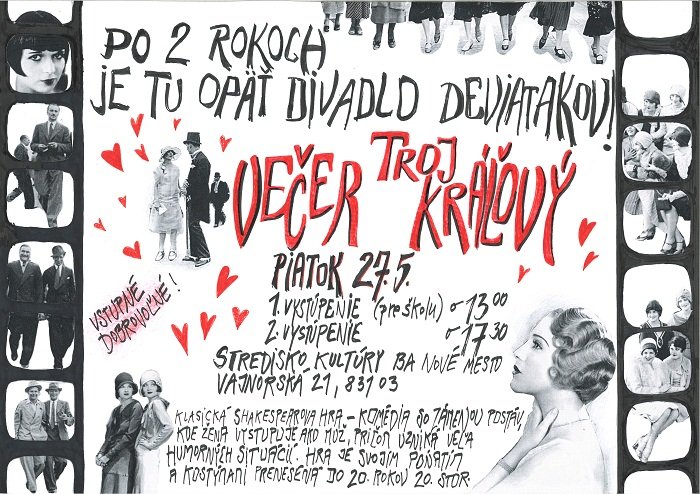 PO 2 ROKOCH
JE TU OPÄŤ DIVADLO DEVIATAKOV!
VEČER TROJ KRÁĽOVÝ
PIATOK 27.5.
1. VYSTÚPENIE (pre školu) o 13 00
2. VYSTÚPENIE o 17 30
STREDISKO KULTÚRY BA NOVÉ MESTO
VAJNORSKÁ 21, 831 03
VSTUPNÉ
DOBROVOĽNÉ!
KLASICKÁ SHAKESPEAROVA HRA - KOMÉDIA SO ZÁMENOU POSTÁV,
KDE ŽENA VYSTUPUJE AKO MUŽ, PRIČOM VZNIKÁ VEĽA
HUMORNÝCH SITUÁCIÍ. HRA JE SVOJIM POŇATÍM
A KOSTÝMAMI PRENESENÁ DO 20. ROKOV 20. STOR.